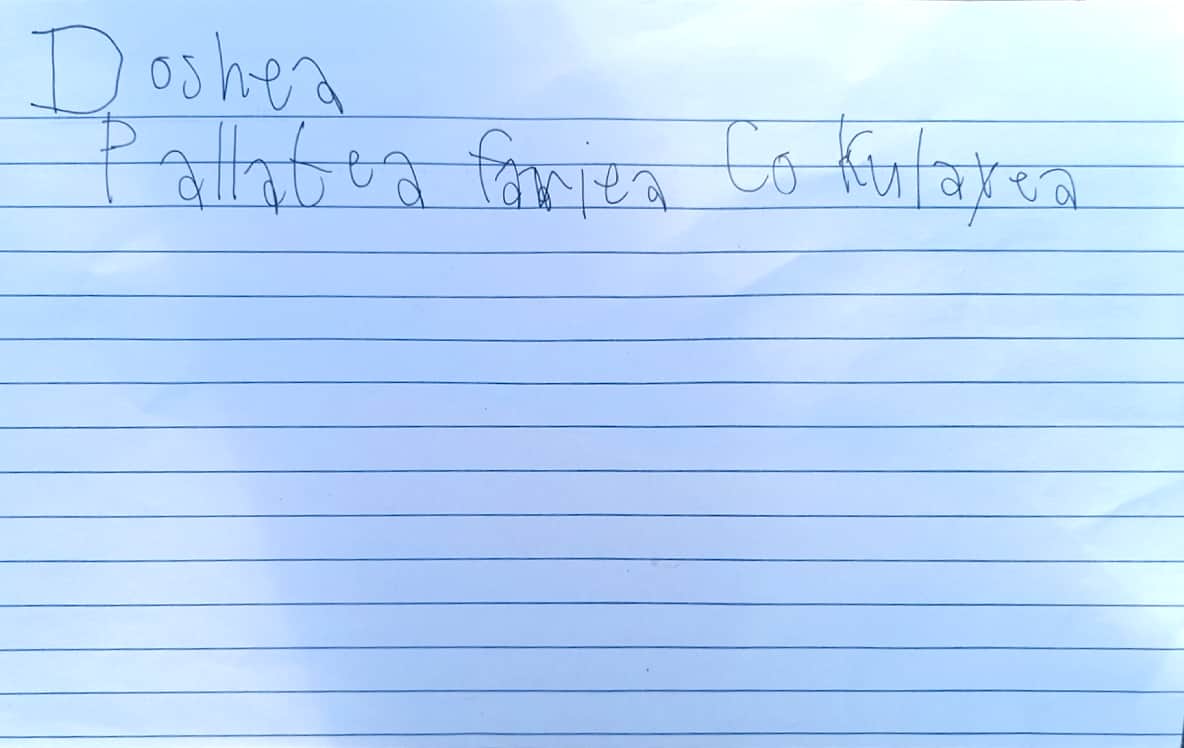 Doshea
Pallatea famiea Co Kulaxea